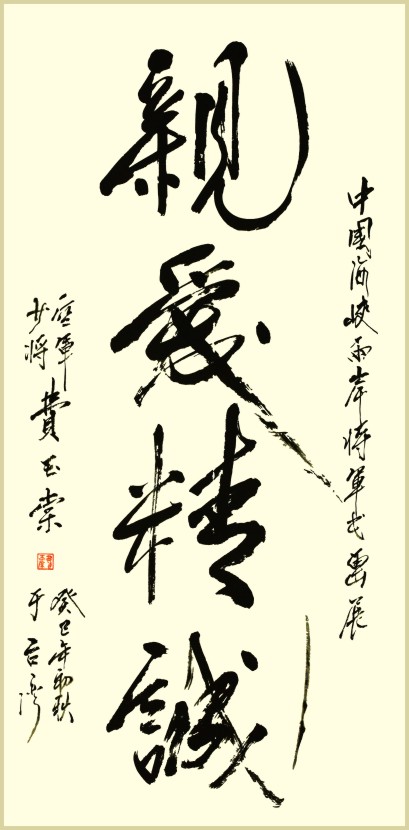 中國海峽兩岸將軍書畫展
親愛精誠
空軍
少將
費玉棠
癸巳年初秋
于台灣